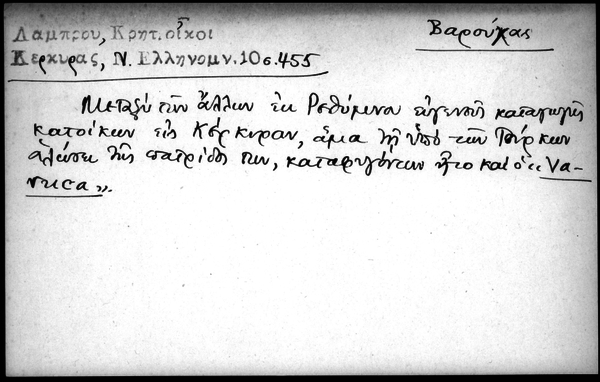 Λαμπρου, Κρητ. οἶκοι
Κερκυρας, Ν. Ελληνομν. 10 σ. 455
Βαρούχας
Μεταξὺ τῶν ἄλλων ἐκ Ρεθύμνου εὐγενοῦς καταγωγῆς
κατοίκων εἰς Κέρκυραν, ἅμα τῇ ὑπὸ τῶν Τούρκων
ἁλώσει τῆς πατρίδος των, καταφυγόντων ἦτο καὶ ὁ "Va-
ruca".